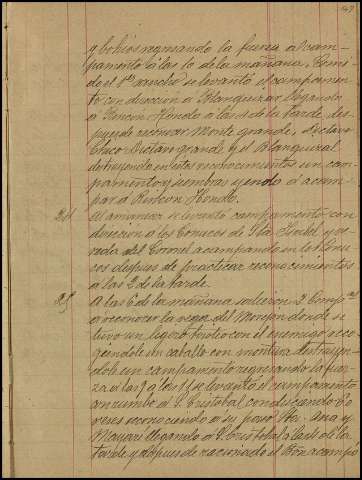 y bohios regresando la fuerza al cam-
pamento á las 10 de la mañana. Comi-
do el 1er rancho se levantó el campamen-
to con direccion á Blanquizar llegando
á Rincon Hondo a las 4 de la tarde des-
pues de reconocer Monte grande,
Chico Dictan grande y el Blanquizal
destruyendo en estos reconocimientos un cam-
pamento y siembras yendo á acam-
par á Rincon Hondo.
24 Al amanecer se levantó campamento con
direccion á los Conucos de Sta Isabel y ve-
reda del Corral acampando en los Conu-
cos despues de practicar reconocimientos
á las 2 de la tarde.
25 A las 6 de la mañana salieron 2 Compas
a reconocer la vega del donde se
tuvo un ligero tiroteo con el enemigo reco-
giendole un caballo con montura destruyen-
dole un campamento regresando la fuer-
za á las y á las 11 se levantó el campamento
con rumbo á S. Cristobal conduciendo
reses reconociendo a su paso Sta. Ana y
Mayari llegando á S. Cristobal á las de la
tarde y despues de racionado el Bon acampó